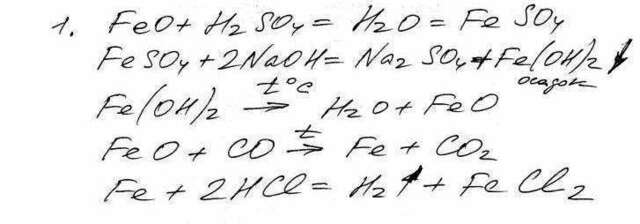 1. FeO + H₂SO₄ = H₂O = FeSO₄
FeSO₄ + 2NaOH = Na₂SO₄ + Fe(OH)₂ ↓
осадок
t°C
Fe(OH)₂ → H₂O + FeO
t
FeO + CO → Fe + CO₂
Fe + 2HCl = H₂↑ + FeCl₂